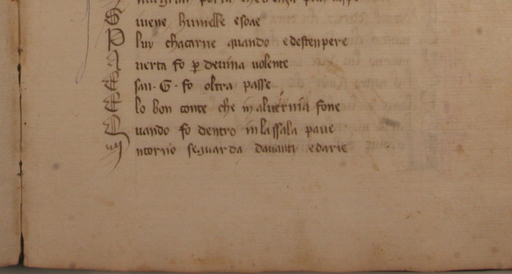 S uene humelle esoae
P luy chacarne quando edestenpere
A uerta fo p deuina uolente
E san · G · fo oltra passe
E lo bon conte che in aluernia fone
Q uando fo dentro in la ssala paue
I ntorno seguarda dauanti edarie